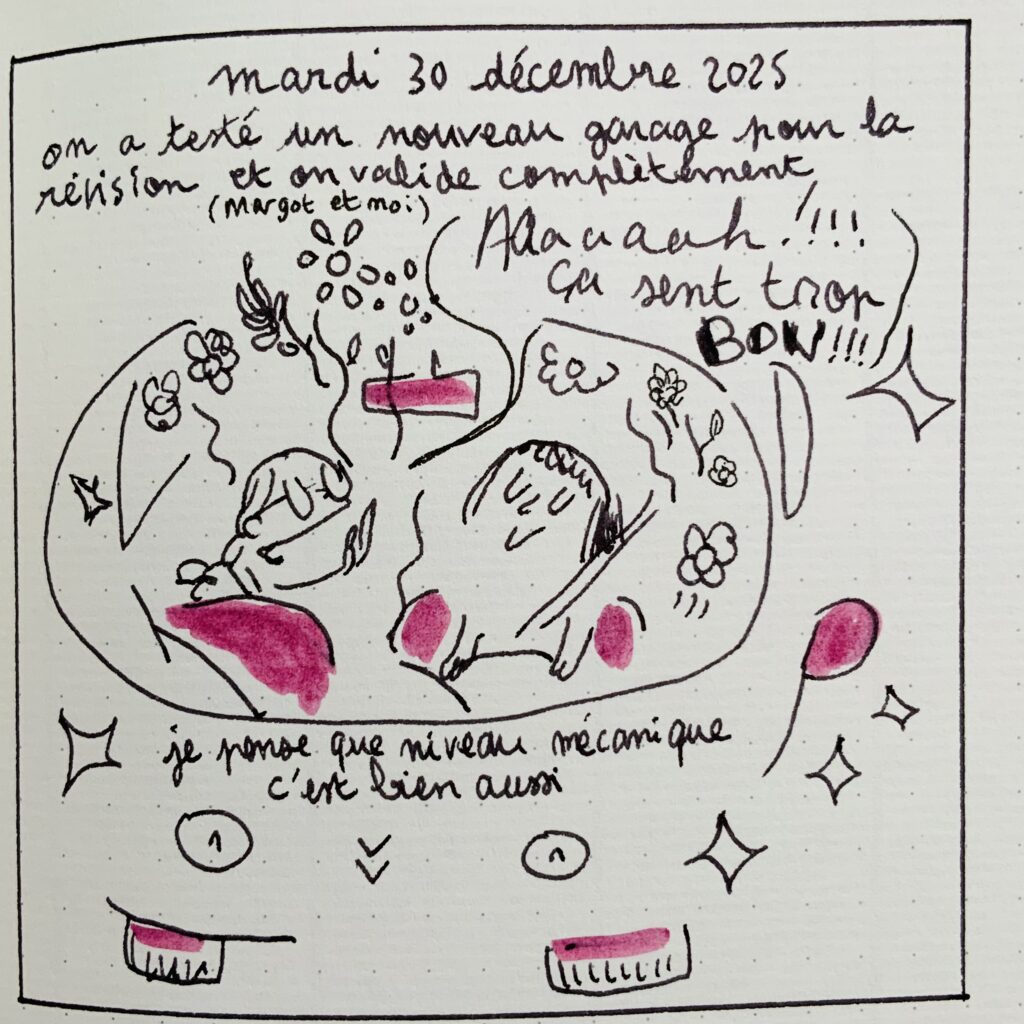 mardi 30 décembre 2025
on a testé un nouveau garage pour la
révision et on valide complètement
(Margot et moi)
AAaaaaah!!!!
ça sent trop
BON!!!
je pense que niveau mécanique
c'est bien aussi